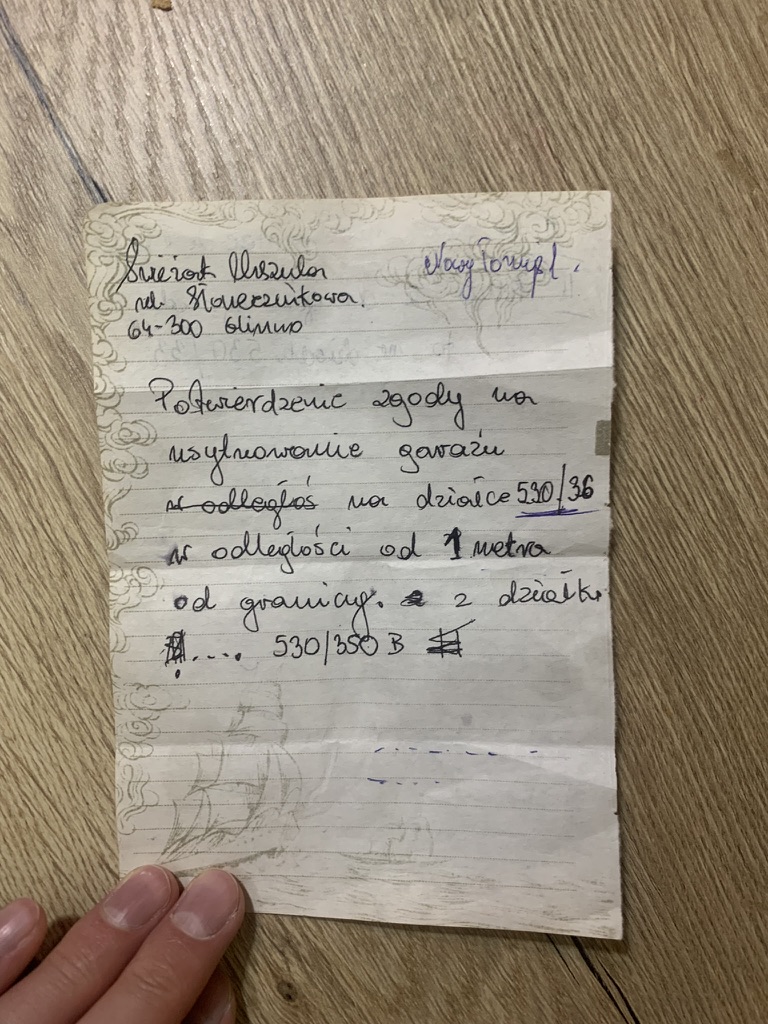 Świeżak Urszula Nowy Tomyśl.
ul.
64-300 Glinno
Potwierdzenie zgody na
usytuowanie garażu
w odległoś na działce 530/36
w odległości od 1 metra
od granicy. z działką
.... 530/350 B